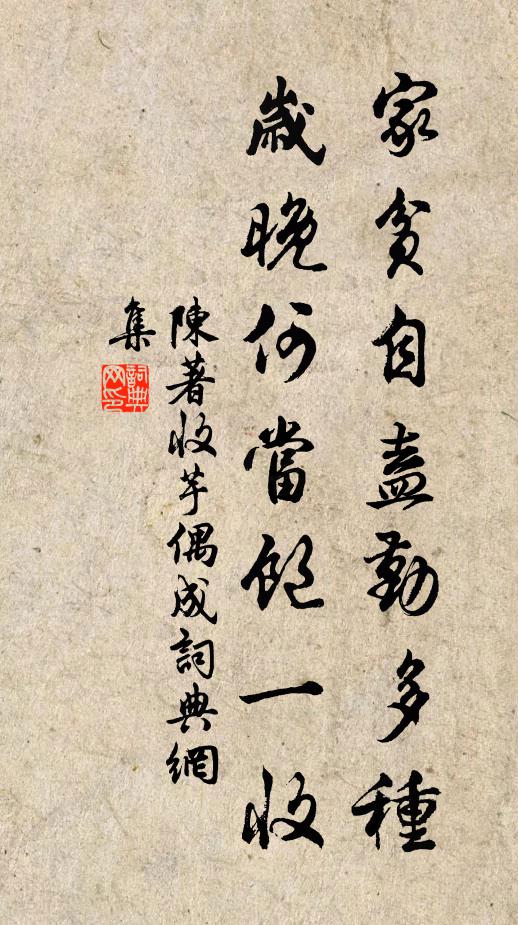 家貧自盍勤多種
歲晚何當飽一收
陳著收芋偶成詞典網
集
詞典
网印